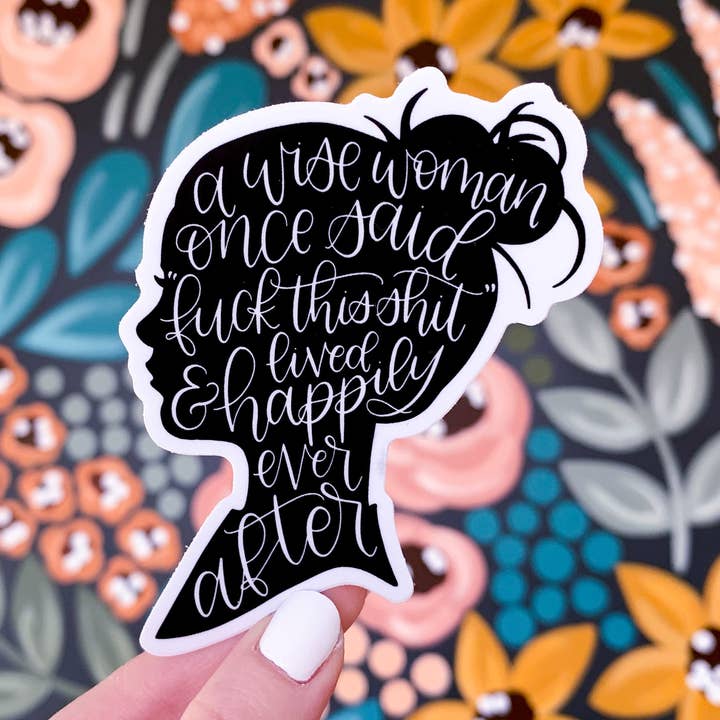 a wise woman
once said
"fuck this shit"
& lived
happily
ever
after